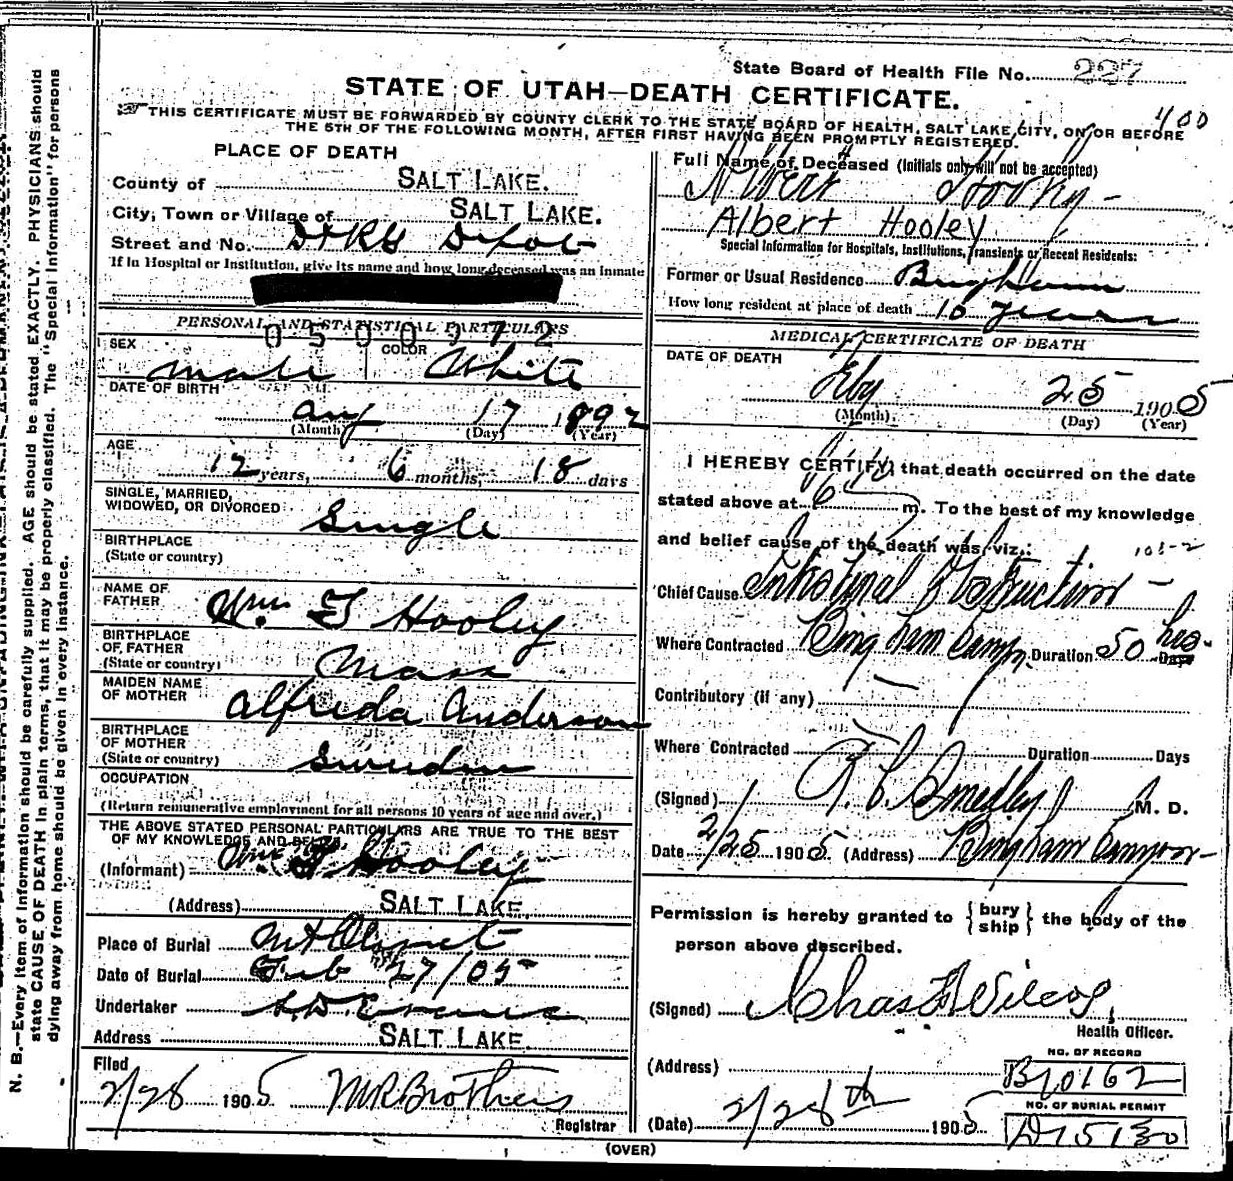 State Board of Health File No. 227
STATE OF UTAH—DEATH CERTIFICATE.
400
THIS CERTIFICATE MUST BE FORWARDED BY COUNTY CLERK TO THE STATE BOARD OF HEALTH, SALT LAKE CITY, ON OR BEFORE
THE 5TH OF THE FOLLOWING MONTH, AFTER FIRST HAVING BEEN PROMPTLY REGISTERED.
PLACE OF DEATH
County of SALT LAKE.
City, Town or Village of SALT LAKE.
Street and No. D&RG Depot
If in Hospital or Institution, give its name and how long deceased was an inmate
PERSONAL AND STATISTICAL PARTICULARS
0500972
SEX male COLOR White
DATE OF BIRTH
Aug 17 1892
(Month) (Day) (Year)
AGE
12 years, 6 months, 18 days
SINGLE, MARRIED,
WIDOWED, OR DIVORCED Single
BIRTHPLACE
(State or country)
NAME OF
FATHER Wm. F Hooley
BIRTHPLACE
OF FATHER
(State or country) Mass
MAIDEN NAME
OF MOTHER Alfreda Anderson
BIRTHPLACE
OF MOTHER
(State or country) Sweden
OCCUPATION
(Return remunerative employment for all persons 10 years of age and over.)
THE ABOVE STATED PERSONAL PARTICULARS ARE TRUE TO THE BEST
OF MY KNOWLEDGE AND BELIEF
(Informant) Wm F Hooley
(Address) SALT LAKE.
Place of Burial Mt Olivet
Date of Burial Feb 27/05
Undertaker S.D. Evans
Address SALT LAKE.
Filed
2/28 1905 M R Brothers
Registrar
Full Name of Deceased (Initials only will not be accepted)
Albert Hooley
Albert Hooley
Special Information for Hospitals, Institutions, Transients or Recent Residents:
Former or Usual Residence Bingham
How long resident at place of death 10 years
MEDICAL CERTIFICATE OF DEATH
DATE OF DEATH
Feby 25 1905
(Month) (Day) (Year)
I HEREBY CERTIFY, that death occurred on the date
stated above at 6 m. To the best of my knowledge
and belief cause of the death was, viz.:
Chief Cause Intestinal Obstruction
Where Contracted Bingham Canyn Duration 50 hrs. Days
Contributory (if any)
Where Contracted Duration Days
(Signed) Smedley M. D.
Date 2/25 1905 (Address) Bingham Canyon
Permission is hereby granted to {bury ship} the body of the
person above described.
(Signed) Chas F Wilcox,
Health Officer.
(Address)
NO. OF RECORD
B10162
(Date) 2/28th 1905
NO. OF BURIAL PERMIT
D15130
(OVER)
N. B.—Every item of information should be carefully supplied. AGE should be stated EXACTLY. PHYSICIANS should
state CAUSE OF DEATH in plain terms, that it may be properly classified. The "Special Information" for persons
dying away from home should be given in every instance.